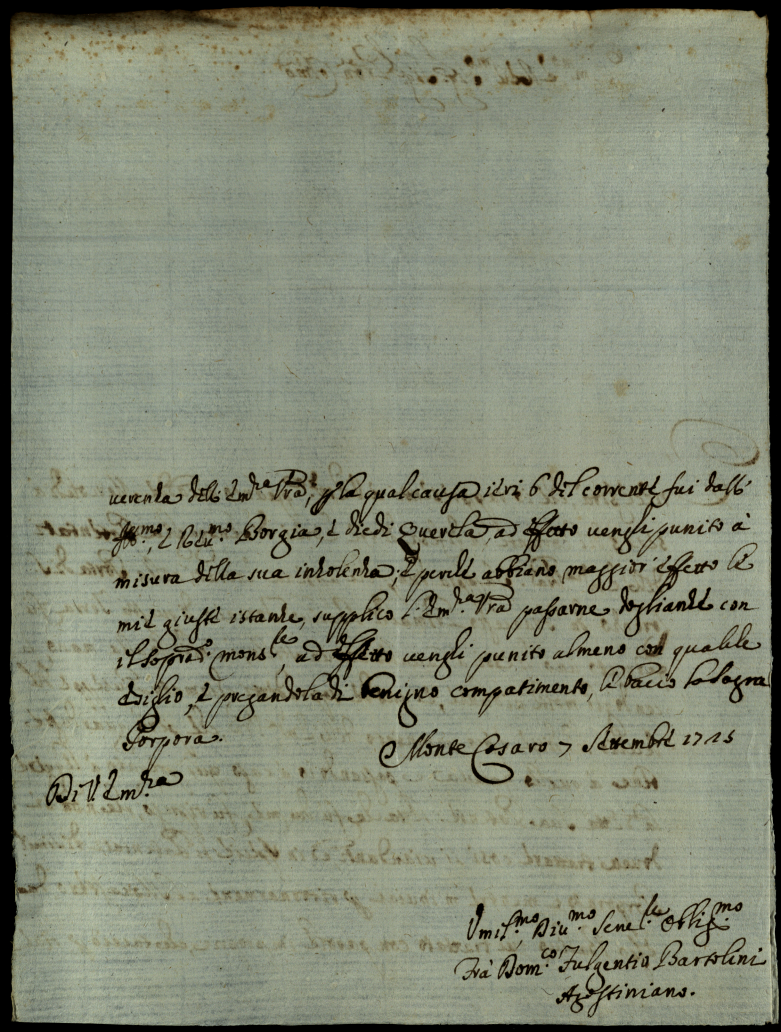 verenza dell' Em.za Vra, p la qual causa ieri 6 del corrente fui dall'
Ill.mo, e R.mo Borgia, e diedi Querela, ad effetto venghi punito à
misura della sua insolenza; e perche abbiano maggior effetto le
mie giuste istanze, supplico l'Em.za Vra passarne doglianze con
il soprad.o mons.re, ad effetto venghi punito almeno con qualche
esiglio, e pregandola di benigno compatimento, le bacio la sagra
Porpora.
Monte Cosaro 7 Settembre 1715
Di V. Em.za
Umil.mo Div.mo Serv.re Oblig.mo
Frà Dom.co Fulgentio Bartolini
Agostiniano.